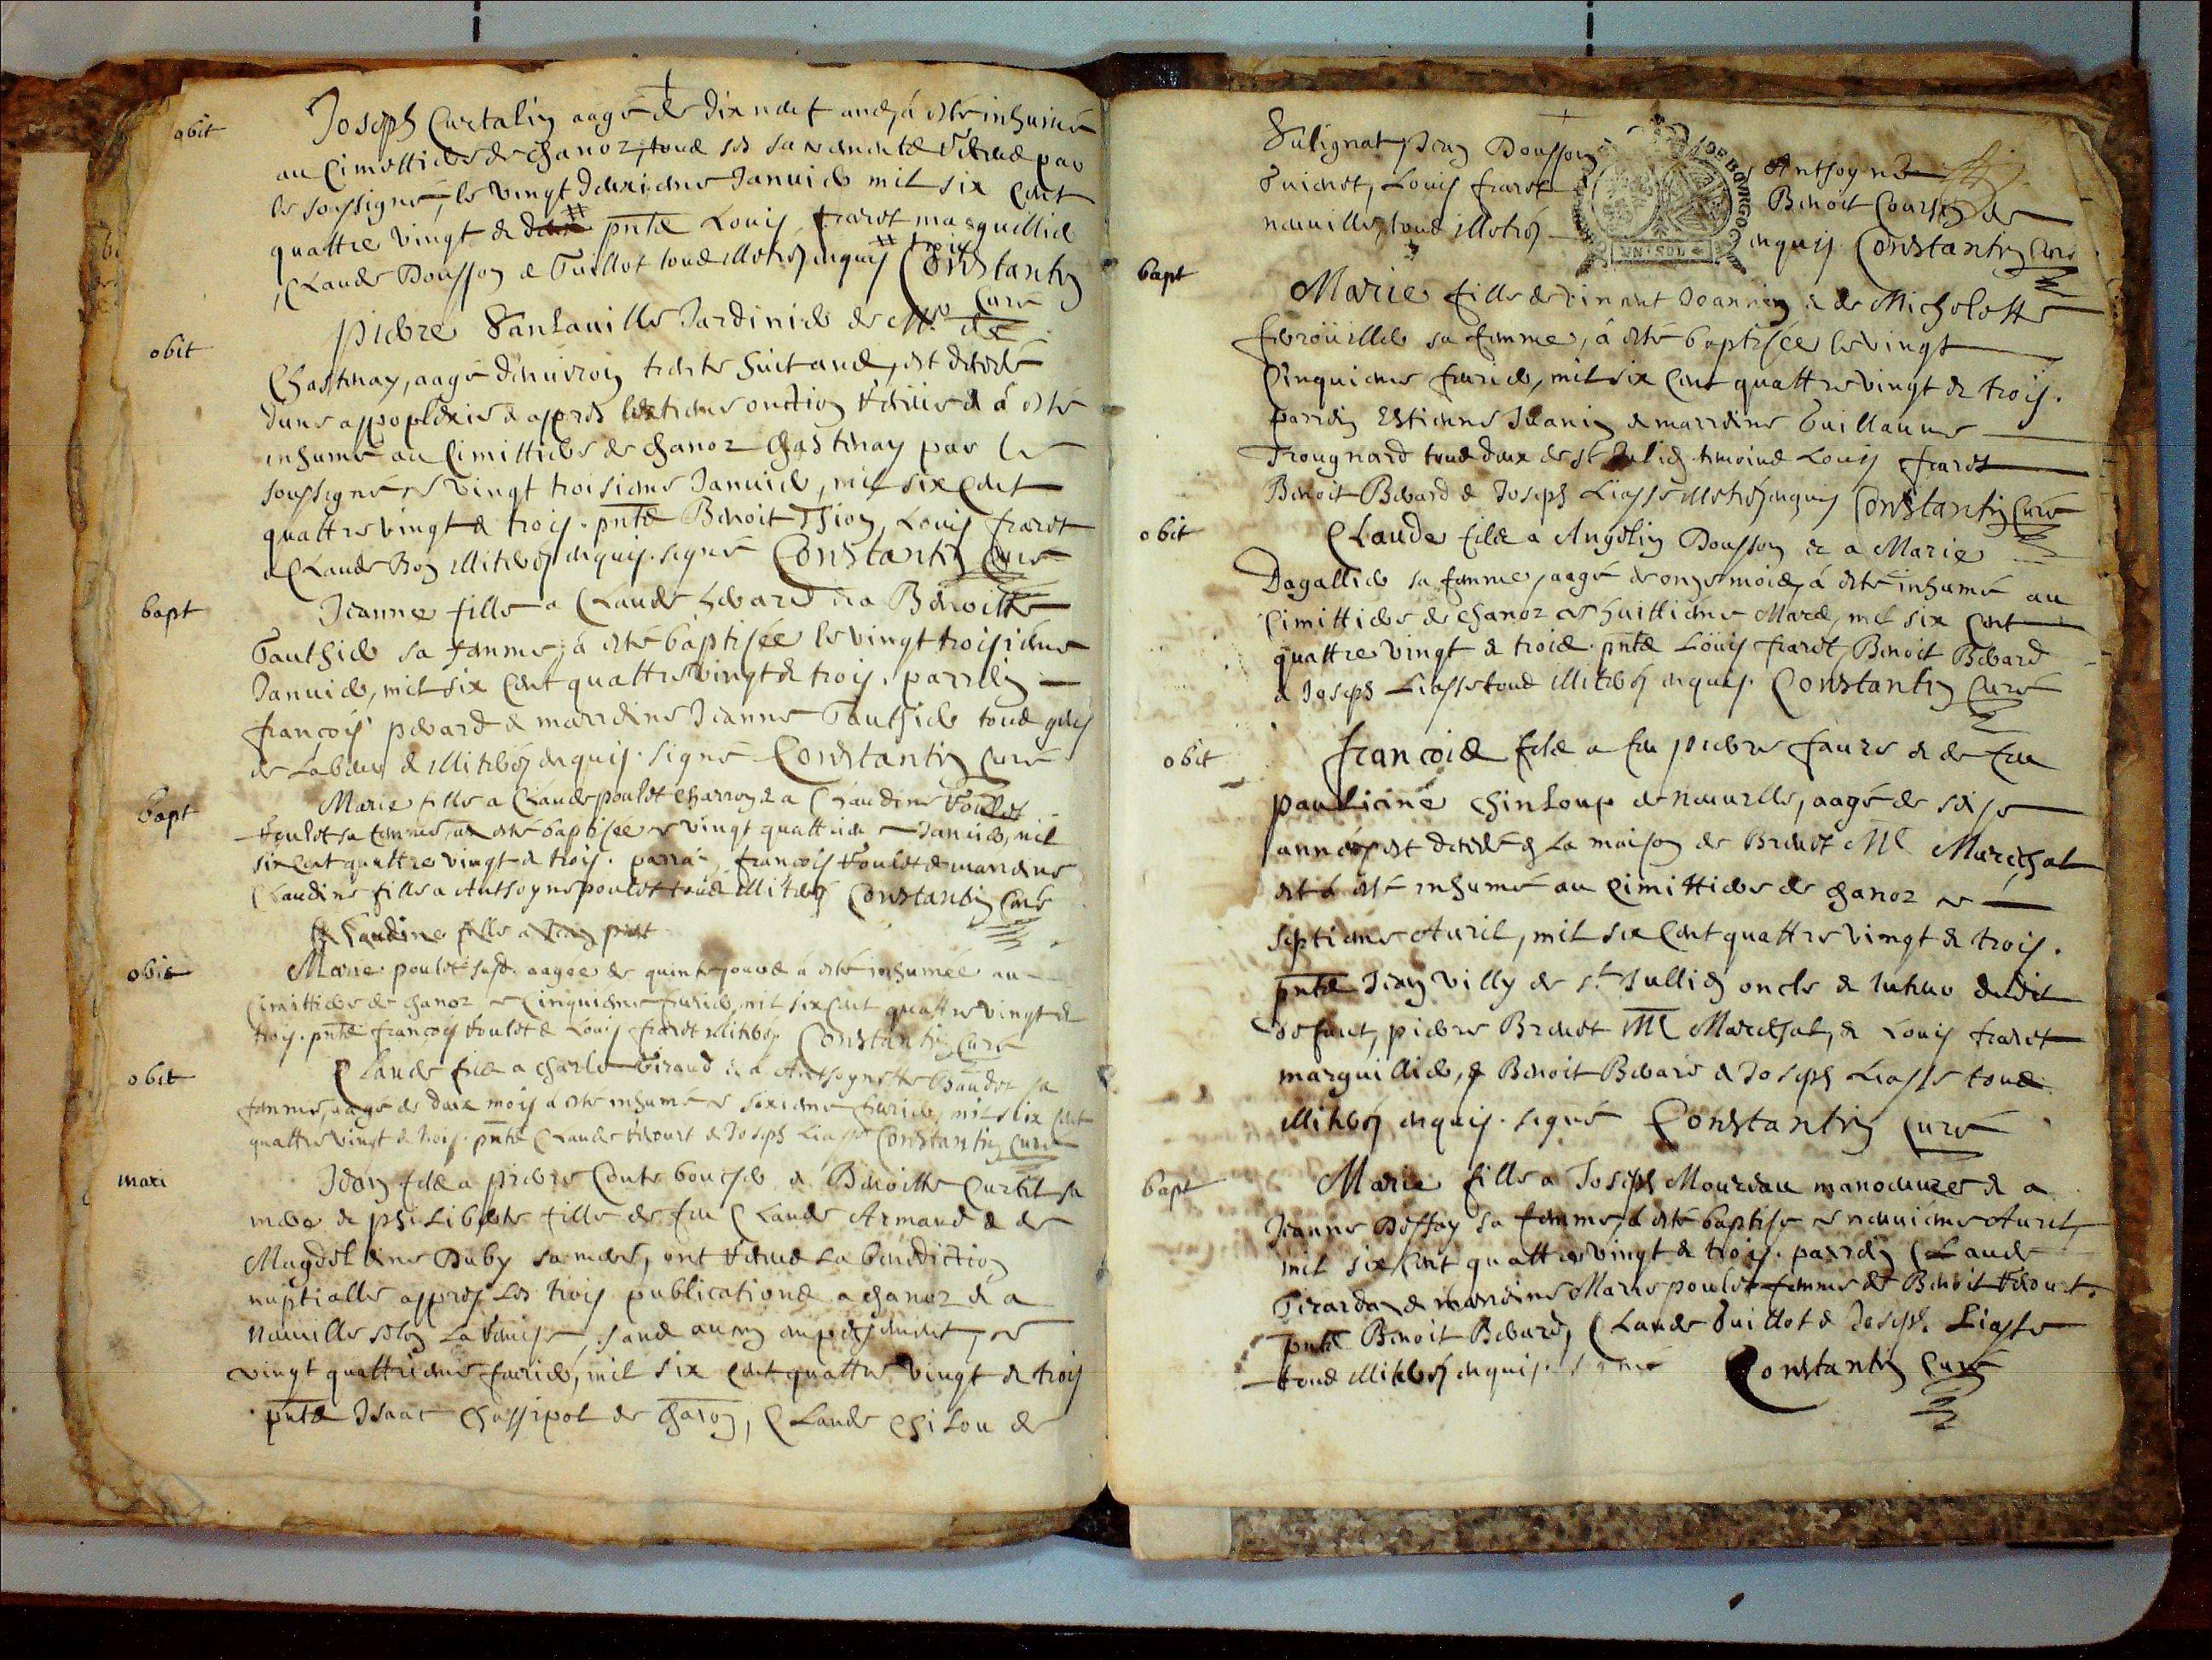 obit
Joseph Curtalin aagé de dix neuf ans, à esté inhumé
au Cimettiere de Chanoz, tous ses sacrements receus par
le soussigné, le vingt deuxieme Janvier mil six cent
quattre vingt & deux pnts Louis fraret marguillier
Claude Bousson & Guillot tous illetrés enquis trois Constantin
Curé
obit
Pierre Jardinier de Mr de
Chastenay, aagé d'environ trente huit ans, est decedé
dune appoplexie & appres lextreme onction receue & á esté
inhumé au Cimittiere de Chanoz Chastenay par le
soussigné ce vingt troisieme Janvier, mil six cent
quattre vingt & trois. pnts Benoit Thion, Louis frarét
& Claude illiterés enquis. signé Constantin Curé
bapt
Jeanne fille a Claude & a Benoitte
Gauthier sa femme, à esté baptisée le vingt troisieme
Janvier, mil six cent quattre vingt & trois. parrein
françois & marreine Jeanne Gauthier tous
de & illiterés enquis. signé Constantin Curé
bapt
Marie fille a Claude poulet charron & a Claudine
sa femme, à esté baptisée ce vingt quattrieme Janvier, mil
six cent quattre vingt & trois. parrain, françois & marreine
Claudine fille a Anthoyne poulet tous illiterés Constantin Curé
Claudine fille a Jean
obit
Marie poulet susd. aagée de quinze jours á esté inhumée au
Cimittiere de Chanoz ce Cinquieme fevrier, mil six cent quattre vingt &
trois. pnts françois & Louis frarét illiterés Constantin Curé
obit
Claude filz a Charle Giraud & a Anthoynette sa
femme, aagé de deux mois á esté inhumé ce sixieme fevrier, mil six cent
quattre vingt & trois. pnts Claude & Joseph Liasse Constantin Curé
mari
Jean filz a pierre Conte boucher & Benoitte Curtil sa
mere & philiberte fille de feu Claude Armand & de
Magdelaine Buby sa mere, ont receus la benediction
nuptialle appres les trois publications a Chanoz & a
Neuville selon la sans aucun empeschement, ce
vingt quattrieme fevrier, mil six cent quattre vingt & trois
pnts Isaac Chassipol de Claude Chilou de
Sulignat, Jean Bousson Anthoyne
Guichet, Louis frarét Benoit Coursin de
neuville, tous illetrés enquis Constantin Curé
UN SOL
bapt
Marie fille de Vincent Joannin & de Michelette
sa femme, á esté baptisée le vingt
Cinquieme fevrier, mil six cent quattre vingt & trois.
parrein Estienne Juanin & marreine Guillaume
Trougnard tous deux de st Julien temoins Louis frarét
Benoit Bevard & Joseph Liasse illetrés enquis Constantin Curé
obit
Claude filz a Angelin Bousson & a Marie
Dagallier sa femme, aagé de onze mois, á esté inhumé au
Cimittiere de Chanoz ce huittieme Mars, mil six cent
quattre vingt & trois. pnts Loüis frarét, Benoit Bevard
& Joseph Liasse tous illiterés enquis. Constantin Curé
obit
françois filz a feu pierre faure & de feu
paulicine Chinloup de Neuville, aagé de seize
années est decedé en la maison de Brevet Me Marechal
et á esté inhumé au Cimittiere de Chanoz ce
septieme Avril, mil six cent quattre vingt & trois.
pnts Jean Villy de st Jullien oncle & tuteur dudit
defunt, pierre Brevet Me Marechal, & Louis frarét
marguillier, & Benoit Bevard & Joseph Liasse tous
illiterés enquis. signé Constantin Curé
bapt
Marie fille a Joseph Moureau manoeuvre & a
Jeanne Beffay sa femme, á esté baptisé ce neuvieme Avril,
mil six cent quattre vingt & trois. parrein Claude
Girardan & marreine Marie poulet femme de Benoit
pnts Benoit Bevard, Claude Guillot & Joseph Liasse
tous illiterés enquis. signé Constantin Curé